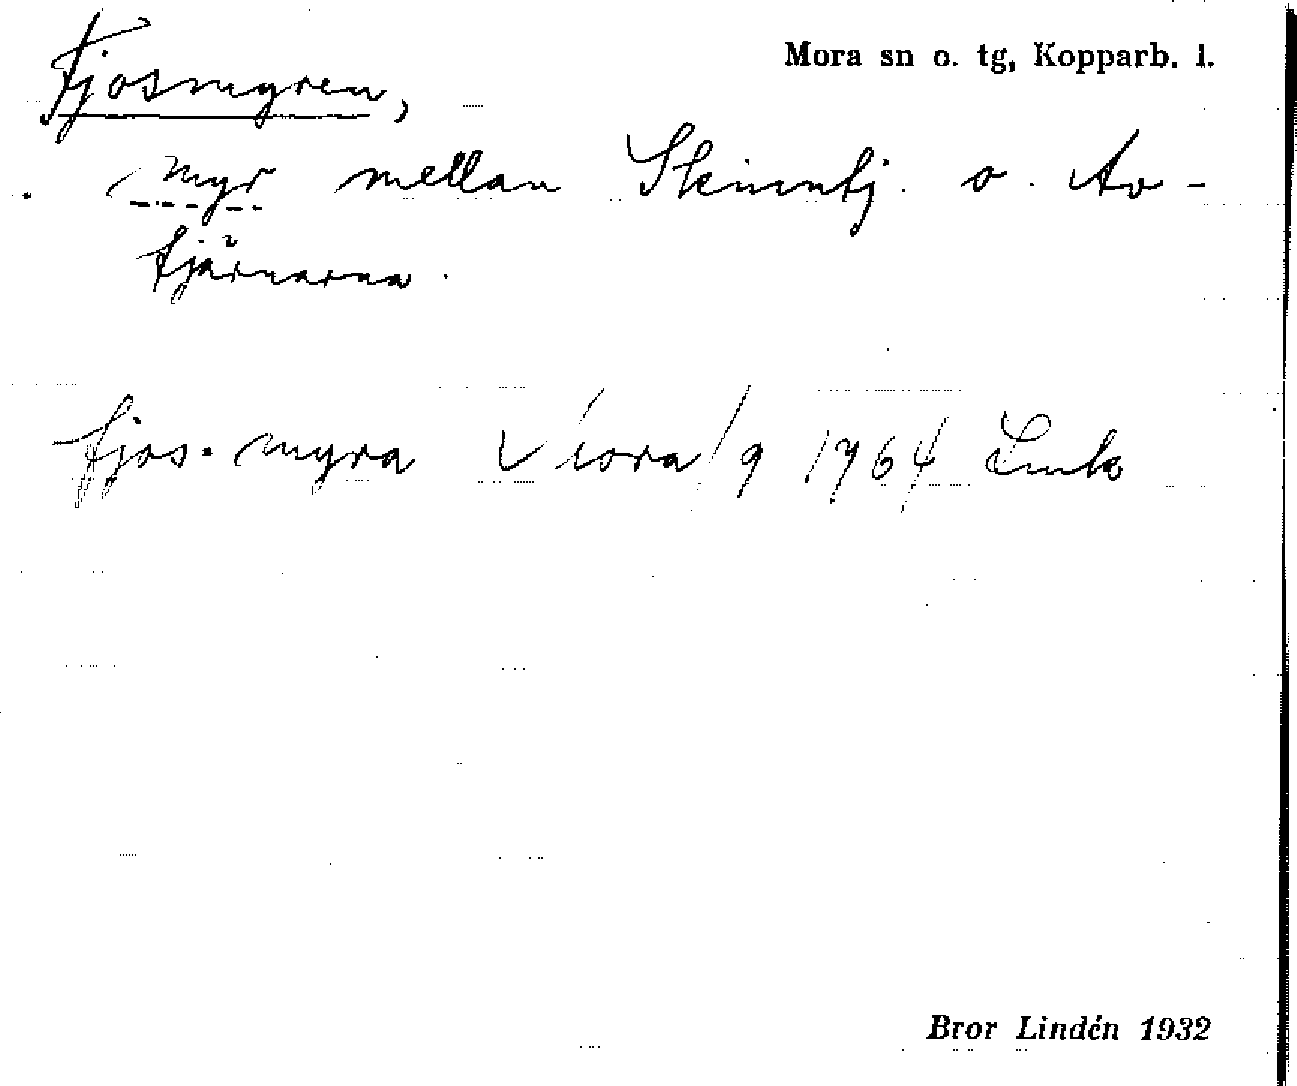 Fjosmyren,
Mora sn o. tg, Kopparb. l.
myr mellan Skinntj. o. Av-
tjärnarna.
fjos-myra V iora/9 1964 Link
Bror Lindén 1932